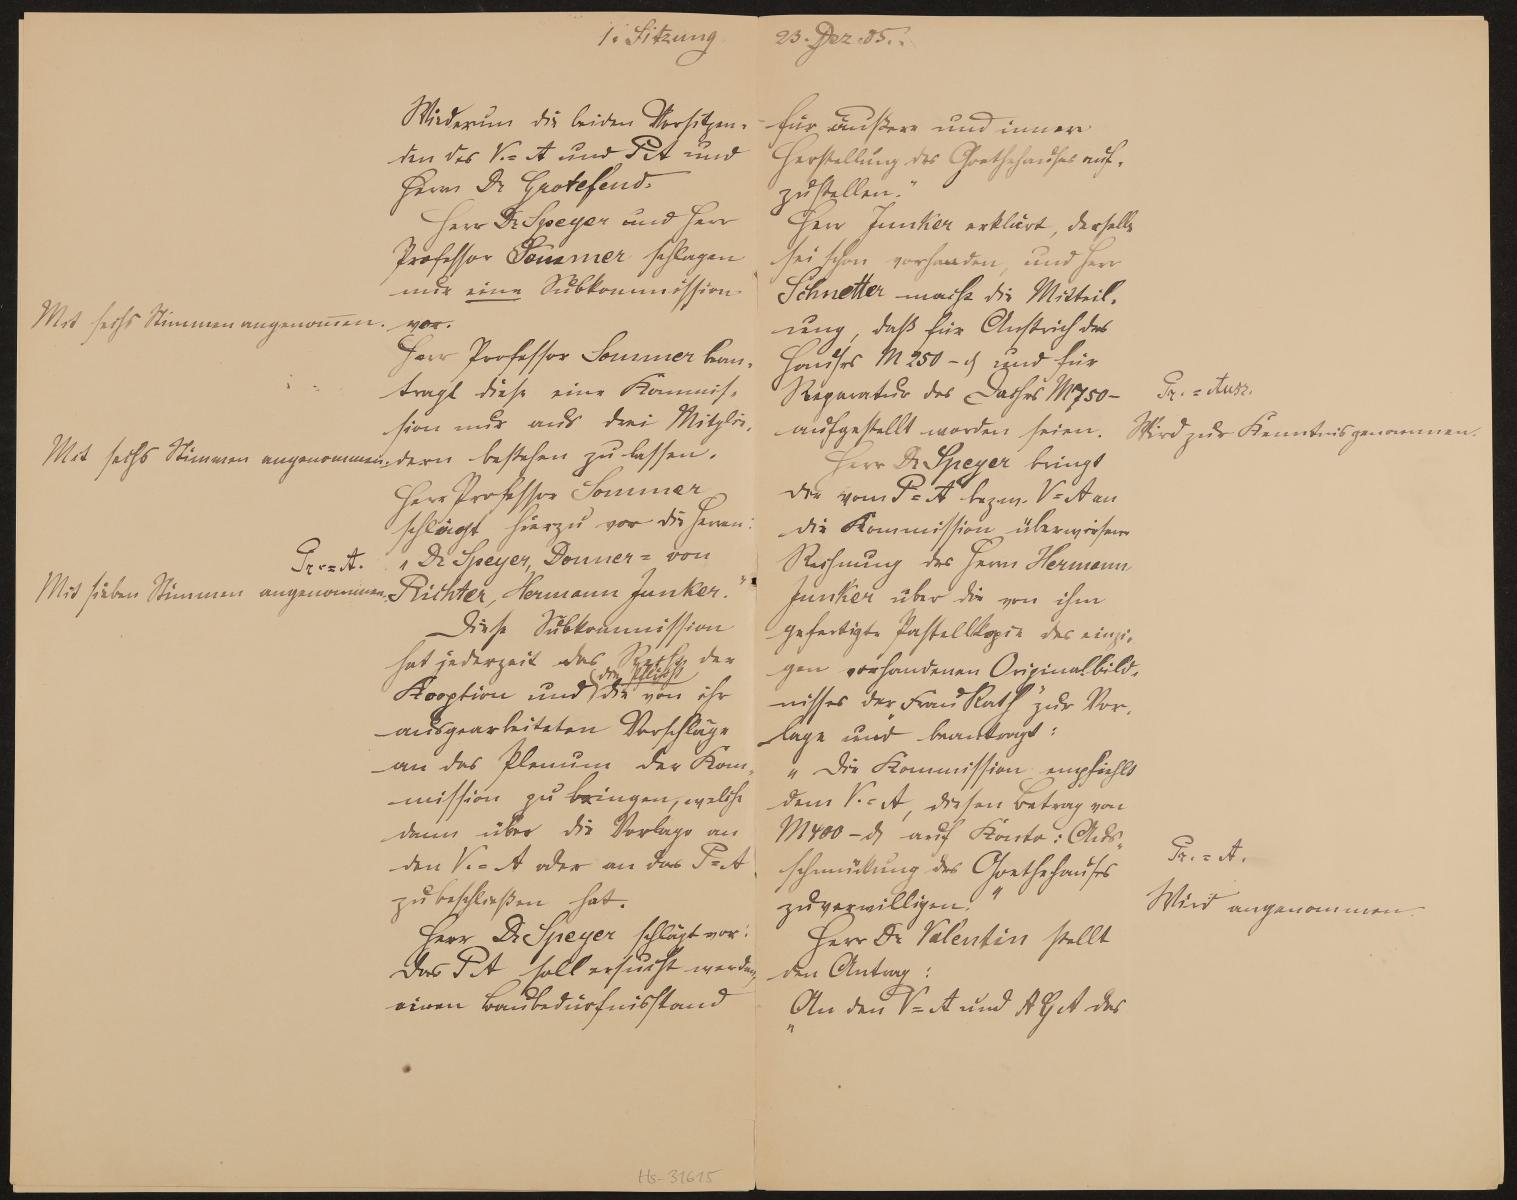 1. Sitzung 23. Dez. 85.
Wiederum die beiden Vorsitzen-
den des V.=A und P.A und
Herrn Dr Grotefend.
Herr Dr Speyer und Herr
Professor Sommer schlagen
nur eine Subkommission
Mit sechs Stimmen angenommen.
vor.
Herr Professor Sommer bean-
tragt diese eine Kommis-
sion nur aus drei Mitglie-
Mit sechs Stimmen angenommen.
dern bestehen zu lassen.
Herr Professor Sommer
schlägt hierzu vor die Herren:
Pr.=A.
„Dr Speyer, Donner=von
Mit sieben Stimmen angenommen.
Richter, Hermann Junker.“
Diese Subkommission
hat jederzeit das Recht der
die Pflicht
Kooption und die von ihr
ausgearbeiteten Vorschläge
an das Plenum der Kom-
mission zu bringen, welche
dann über die Vorlage an
den V.=A oder an das P=A
zu beschließen hat.
Herr Dr Speyer schlägt vor:
Das P.A soll ersucht werden,
einen Baubedürfnisstand
für äußere und innere
Herstellung des Goethehauses auf-
zustellen.“
Herr Junker erklärt, derselbe
sei schon vorhanden, und Herr
Schnetter macht die Mitteil-
ung, daß für Anstrich des
Hauses M 250 – und für
Reparatur des Daches M 750 –
Pr.=Ausz.
aufgestellt worden seien.
Wird zur Kenntnis genommen.
Herr Dr Speyer bringt
die vom P=A bezw. V=A an
die Kommission überwiesene
Rechnung des Herrn Hermann
Junker über die von ihm
gefertigte Pastellkopie des einzi-
gen vorhandenen Originalbild-
nisses der „Frau Rath“ zur Vor-
lage und beantragt:
„Die Kommission empfiehlt
dem V.=A, diesen Betrag von
M 400 – auf Konto: Aus-
Pr.=A.
schmückung des Goethehauses
zu verwilligen.“
Wird angenommen.
Herr Dr Valentin stellt
den Antrag:
„An den V=A und AGA das
Hs-31615